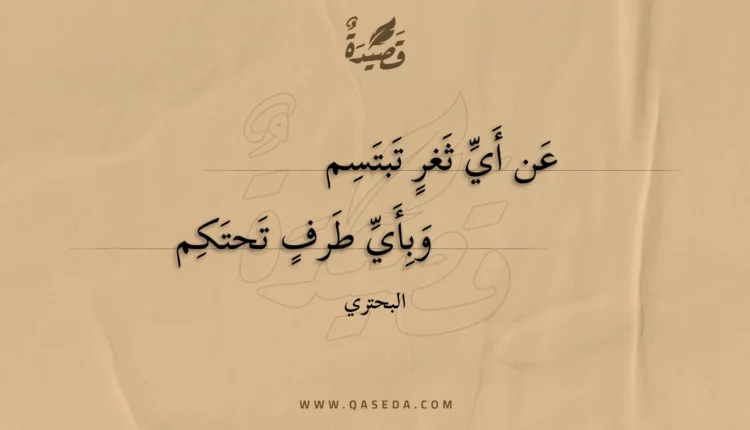 قَصِيدَةٌ
عَن أَيِّ ثَغرٍ تَبتَسِم
وَبِأَيِّ طَرفٍ تَحتَكِم
البحتري
WWW.QASEDA.COM